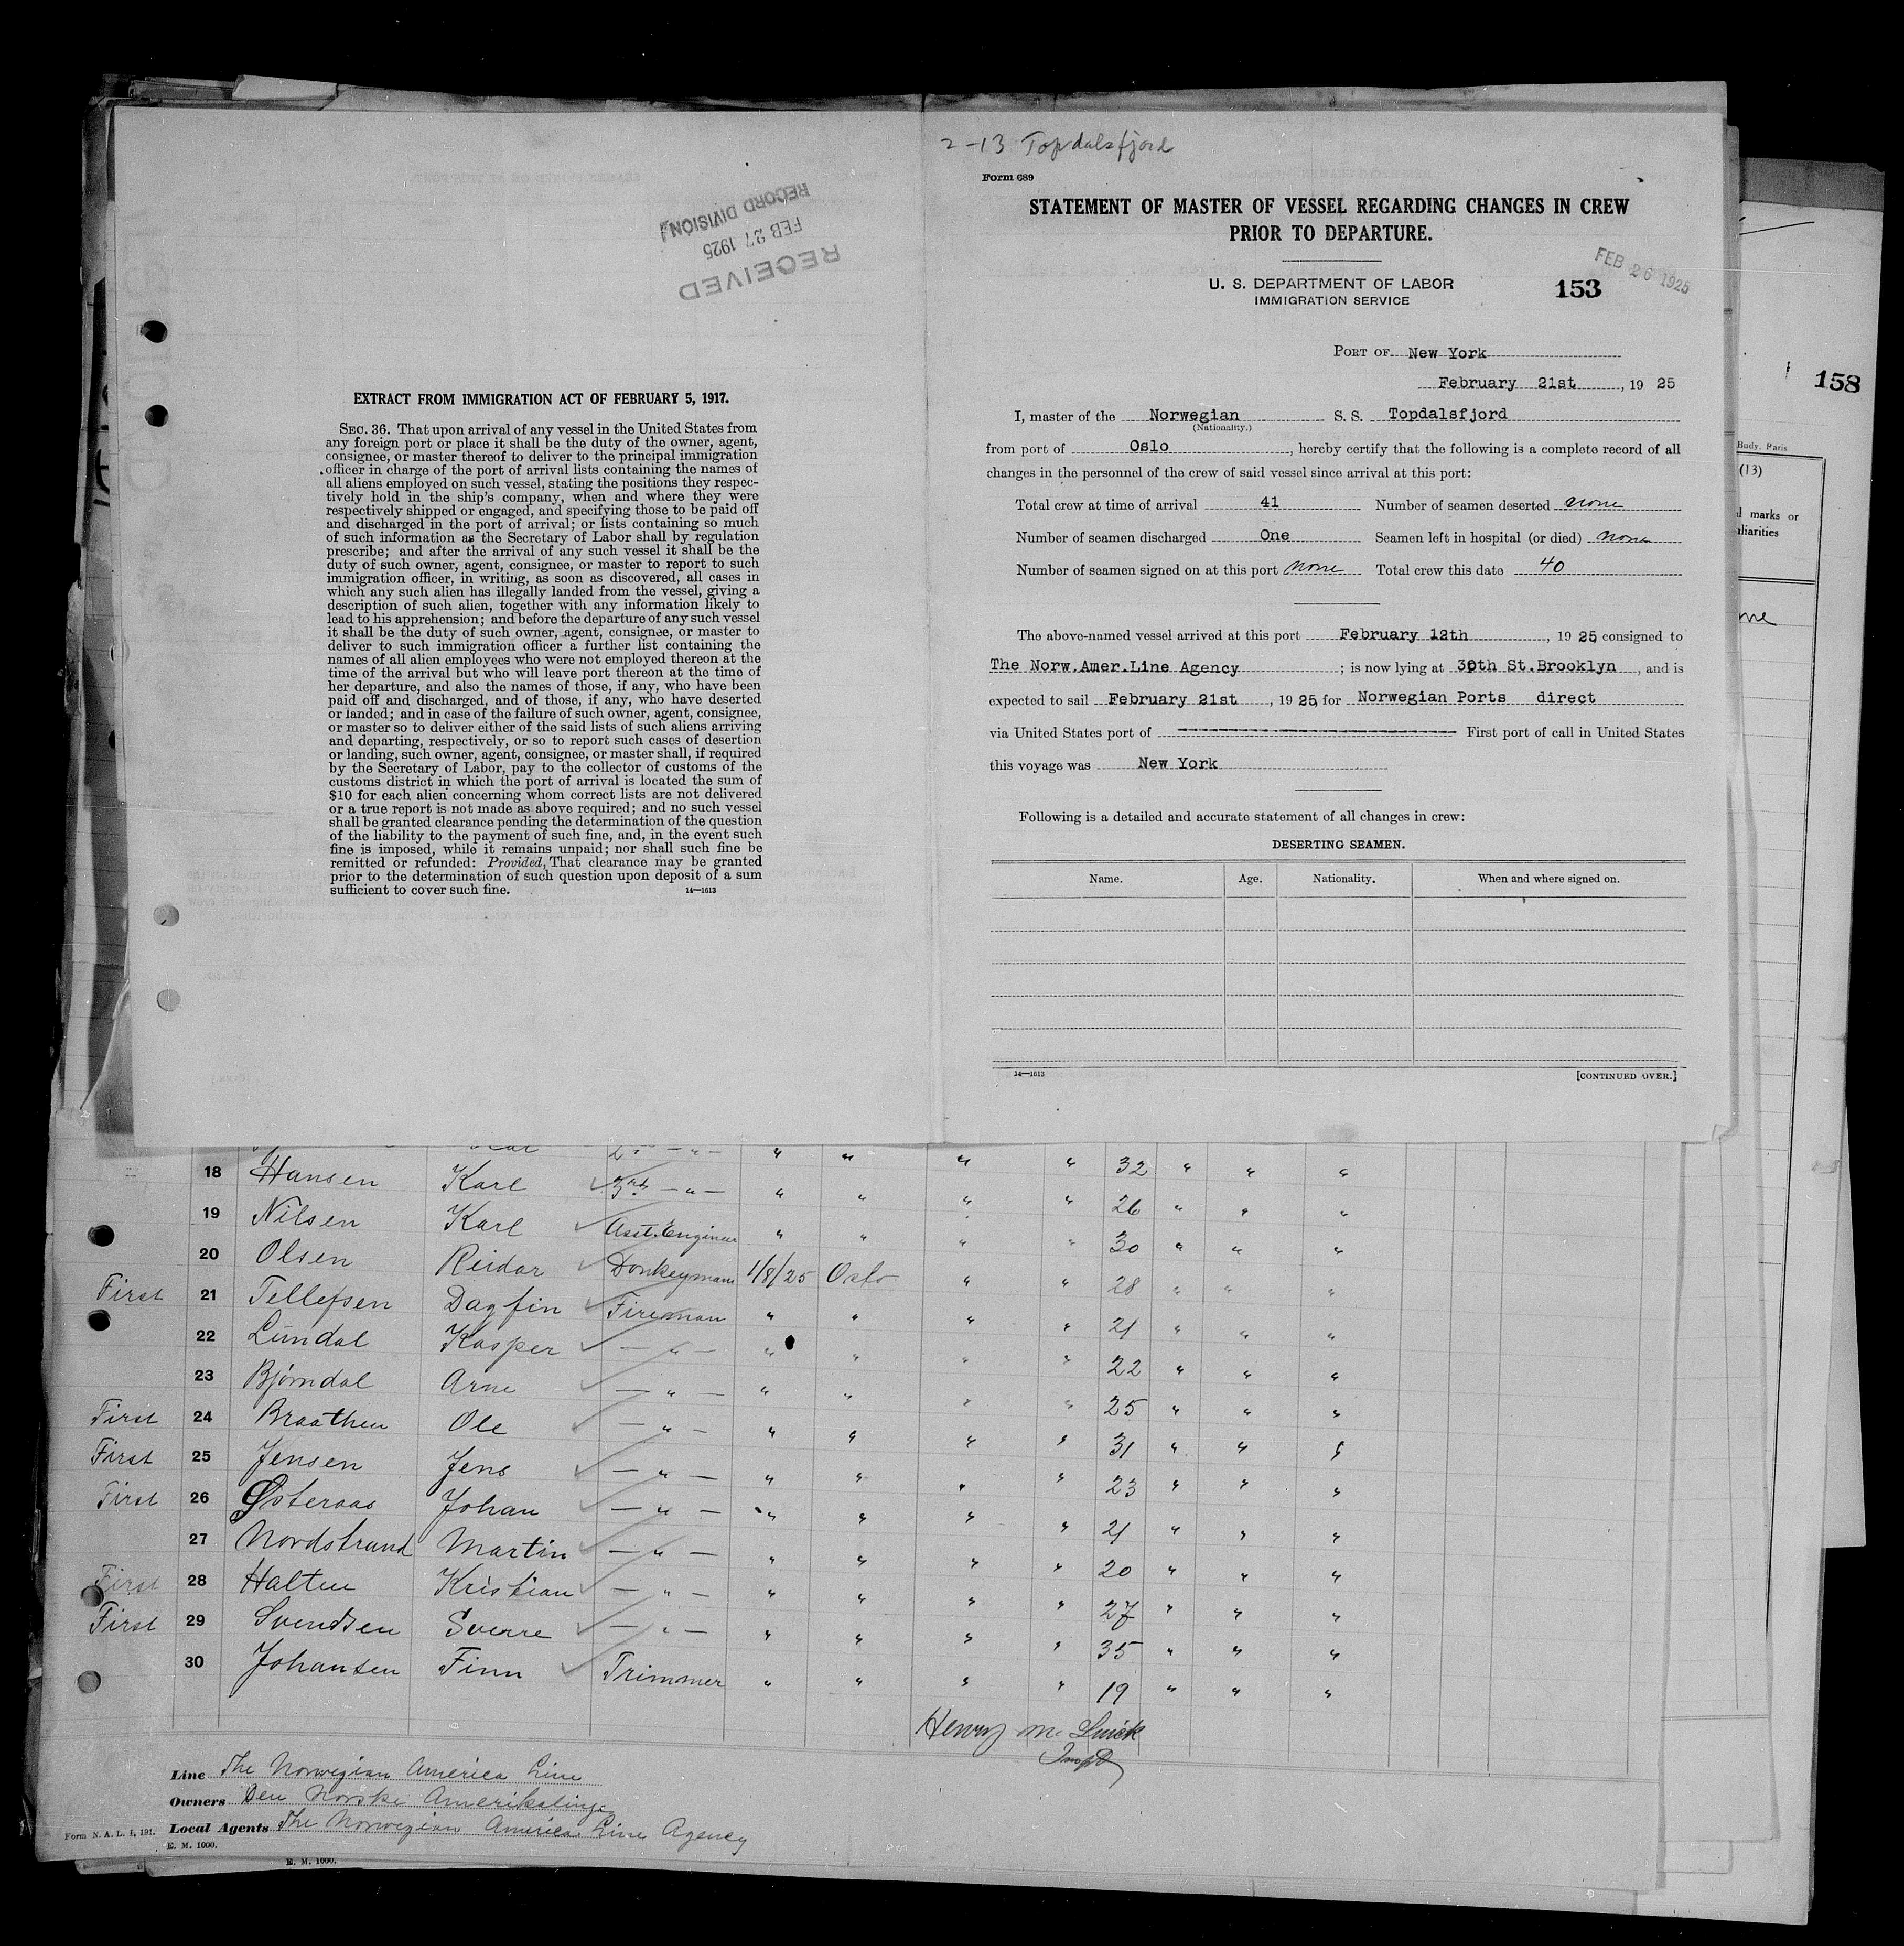 RECORD DIVISION
FEB 27 1925
RECEIVED
EXTRACT FROM IMMIGRATION ACT OF FEBRUARY 5, 1917.
SEC. 36. That upon arrival of any vessel in the United States from
any foreign port or place it shall be the duty of the owner, agent,
consignee, or master thereof to deliver to the principal immigration
officer in charge of the port of arrival lists containing the names of
all aliens employed on such vessel, stating the positions they respec-
tively hold in the ship's company, when and where they were
respectively shipped or engaged, and specifying those to be paid off
and discharged in the port of arrival; or lists containing so much
of such information as the Secretary of Labor shall by regulation
prescribe; and after the arrival of any such vessel it shall be the
duty of such owner, agent, consignee, or master to report to such
immigration officer, in writing, as soon as discovered, all cases in
which any such alien has illegally landed from the vessel, giving a
description of such alien, together with any information likely to
lead to his apprehension; and before the departure of any such vessel
it shall be the duty of such owner, agent, consignee, or master to
deliver to such immigration officer a further list containing the
names of all alien employees who were not employed thereon at the
time of the arrival but who will leave port thereon at the time of
her departure, and also the names of those, if any, who have been
paid off and discharged, and of those, if any, who have deserted
or landed; and in case of the failure of such owner, agent, consignee,
or master so to deliver either of the said lists of such aliens arriving
and departing, respectively, or so to report such cases of desertion
or landing, such owner, agent, consignee, or master shall, if required
by the Secretary of Labor, pay to the collector of customs of the
customs district in which the port of arrival is located the sum of
$10 for each alien concerning whom correct lists are not delivered
or a true report is not made as above required; and no such vessel
shall be granted clearance pending the determination of the question
of the liability to the payment of such fine, and, in the event such
fine is imposed, while it remains unpaid; nor shall such fine be
remitted or refunded: Provided, That clearance may be granted
prior to the determination of such question upon deposit of a sum
sufficient to cover such fine. 14—1613
2-13 Topdalsfjord
Form 689
STATEMENT OF MASTER OF VESSEL REGARDING CHANGES IN CREW
PRIOR TO DEPARTURE.
U. S. DEPARTMENT OF LABOR
IMMIGRATION SERVICE
153
FEB 26 1925
PORT OF New York
February 21st, 1925
I, master of the Norwegian S. S. Topdalsfjord
(Nationality.)
from port of Oslo, hereby certify that the following is a complete record of all
changes in the personnel of the crew of said vessel since arrival at this port:
Total crew at time of arrival 41 Number of seamen deserted none
Number of seamen discharged One Seamen left in hospital (or died) none
Number of seamen signed on at this port none Total crew this date 40
The above-named vessel arrived at this port February 12th, 1925 consigned to
The Norw.Amer.Line Agency; is now lying at 30th St.Brooklyn, and is
expected to sail February 21st, 1925, for Norwegian Ports direct
via United States port of ---------- First port of call in United States
this voyage was New York
Following is a detailed and accurate statement of all changes in crew:
DESERTING SEAMEN.
Name. Age. Nationality. When and where signed on.
14—1613 [CONTINUED OVER.]
158
Budy. Paris
(13)
marks or
18 Hansen Karl 3rd — " — " " " " 32 " " "
19 Nilsen Karl Asst. Engineer " " " " 26 " " "
20 Olsen Reidar Donkeyman 1/8/25 Oslo " " 30 " " "
First 21 Tellefsen Dagfin Fireman " " " " 28 " " "
22 Lundal Kasper — " — " " " " 21 " " "
23 Bjørndal Arne — " — " " " " 22 " " "
First 24 Braathen Ole — " — " " " " 25 " " "
First 25 Jensen Jens — " — " " " " 31 " " "
First 26 Østeraas Johan — " — " " " " 23 " " "
27 Nordstrand Martin — " — " " " " 21 " " "
First 28 Halten Kristian — " — " " " " 20 " " "
First 29 Svendsen Sverre — " — " " " " 27 " " "
30 Johansen Finn Trimmer " " " " 35 " " "
19 " " "
Henry Mc
Insp
Line The Norwegian America Line
Owners Den Norske Amerikalinje
Local Agents The Norwegian America Line Agency
Form N. A. L. 1, 191.
E. M. 1000.
E. M. 1000.